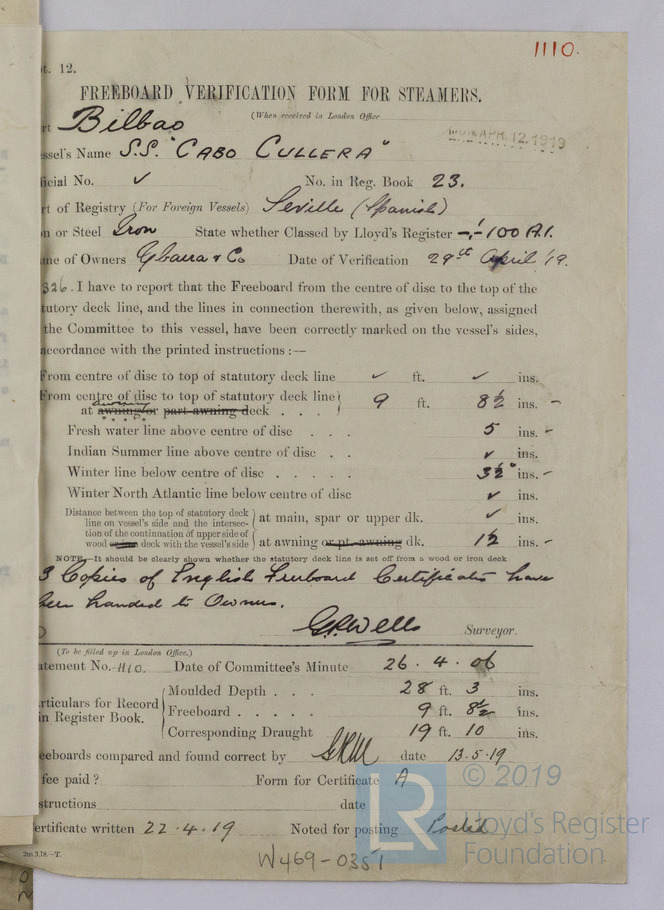 1110.
t. 12.
FREEBOARD VERIFICATION FORM FOR STEAMERS.
(When received in London Office
rt Bilbao
MON. APR. 12. 1919
ssel's Name S.S. "CABO CULLERA"
ficial No. ✓ No. in Reg. Book 23.
rt of Registry (For Foreign Vessels) Seville (Spanish)
n or Steel Iron State whether Classed by Lloyd's Register 100 A.1.
me of Owners Ybarra & Co Date of Verification 29th April '19.
326. I have to report that the Freeboard from the centre of disc to the top of the
tutory deck line, and the lines in connection therewith, as given below, assigned
the Committee to this vessel, have been correctly marked on the vessel's sides,
accordance with the printed instructions :—
From centre of disc to top of statutory deck line ✓ ft. ✓ ins.
From centre of disc to top of statutory deck line
at awning or part awning deck . . . 9 ft. 8½ ins. –
awning
Fresh water line above centre of disc . . . 5 ins. –
Indian Summer line above centre of disc . . ✓ ins.
Winter line below centre of disc . . . . . 3½" ins. –
Winter North Atlantic line below centre of disc ✓ ins.
Distance between the top of statutory deck
line on vessel's side and the intersec-
tion of the continuation of upper side of
wood or iron deck with the vessel's side
at main, spar or upper dk. ✓ ins.
at awning or pt. awning dk. 1½ ins. –
NOTE.—It should be clearly shown whether the statutory deck line is set off from a wood or iron deck
3 Copies of English Freeboard Certificates have
been handed to Owners.
G.P. Wells Surveyor.
(To be filled up in London Office.)
atement No. 1110. Date of Committee's Minute 26 . 4 . 06
articulars for Record
in Register Book.
Moulded Depth . . . 28 ft. 3 ins.
Freeboard . . . . . 9 ft. 8½ ins.
Corresponding Draught 19 ft. 10 ins.
eeboards compared and found correct by date 13.5.19
fee paid ? Form for Certificate A
structions date
ertificate written 22.4.19 Noted for posting Posted
2m 3.18.—T.
W469-0351
LR
© 2019
Lloyd's Register
Foundation